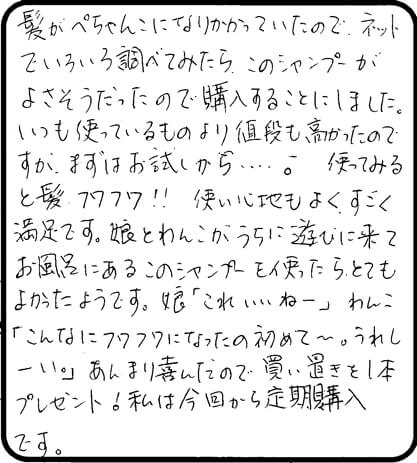 髪がぺちゃんこになりかかっていたので、ネット
でいろいろ調べてみたら、このシャンプーが
よさそうだったので購入することにしました。
いつも使っているものより値段も高かったので
すが、まずはお試しから‥‥。 使ってみる
と髪フワフワ!! 使い心地もよく、すごく
満足です。娘とわんこがうちに遊びに来て
お風呂にあるこのシャンプーを使ったら、とても
よかったようです。娘「これいいねー」わんこ
「こんなにフワフワになったの初めて〜。うれし
ーい。」あんまり喜んだので買い置きを1本
プレゼント!私は今回から定期購入
です。